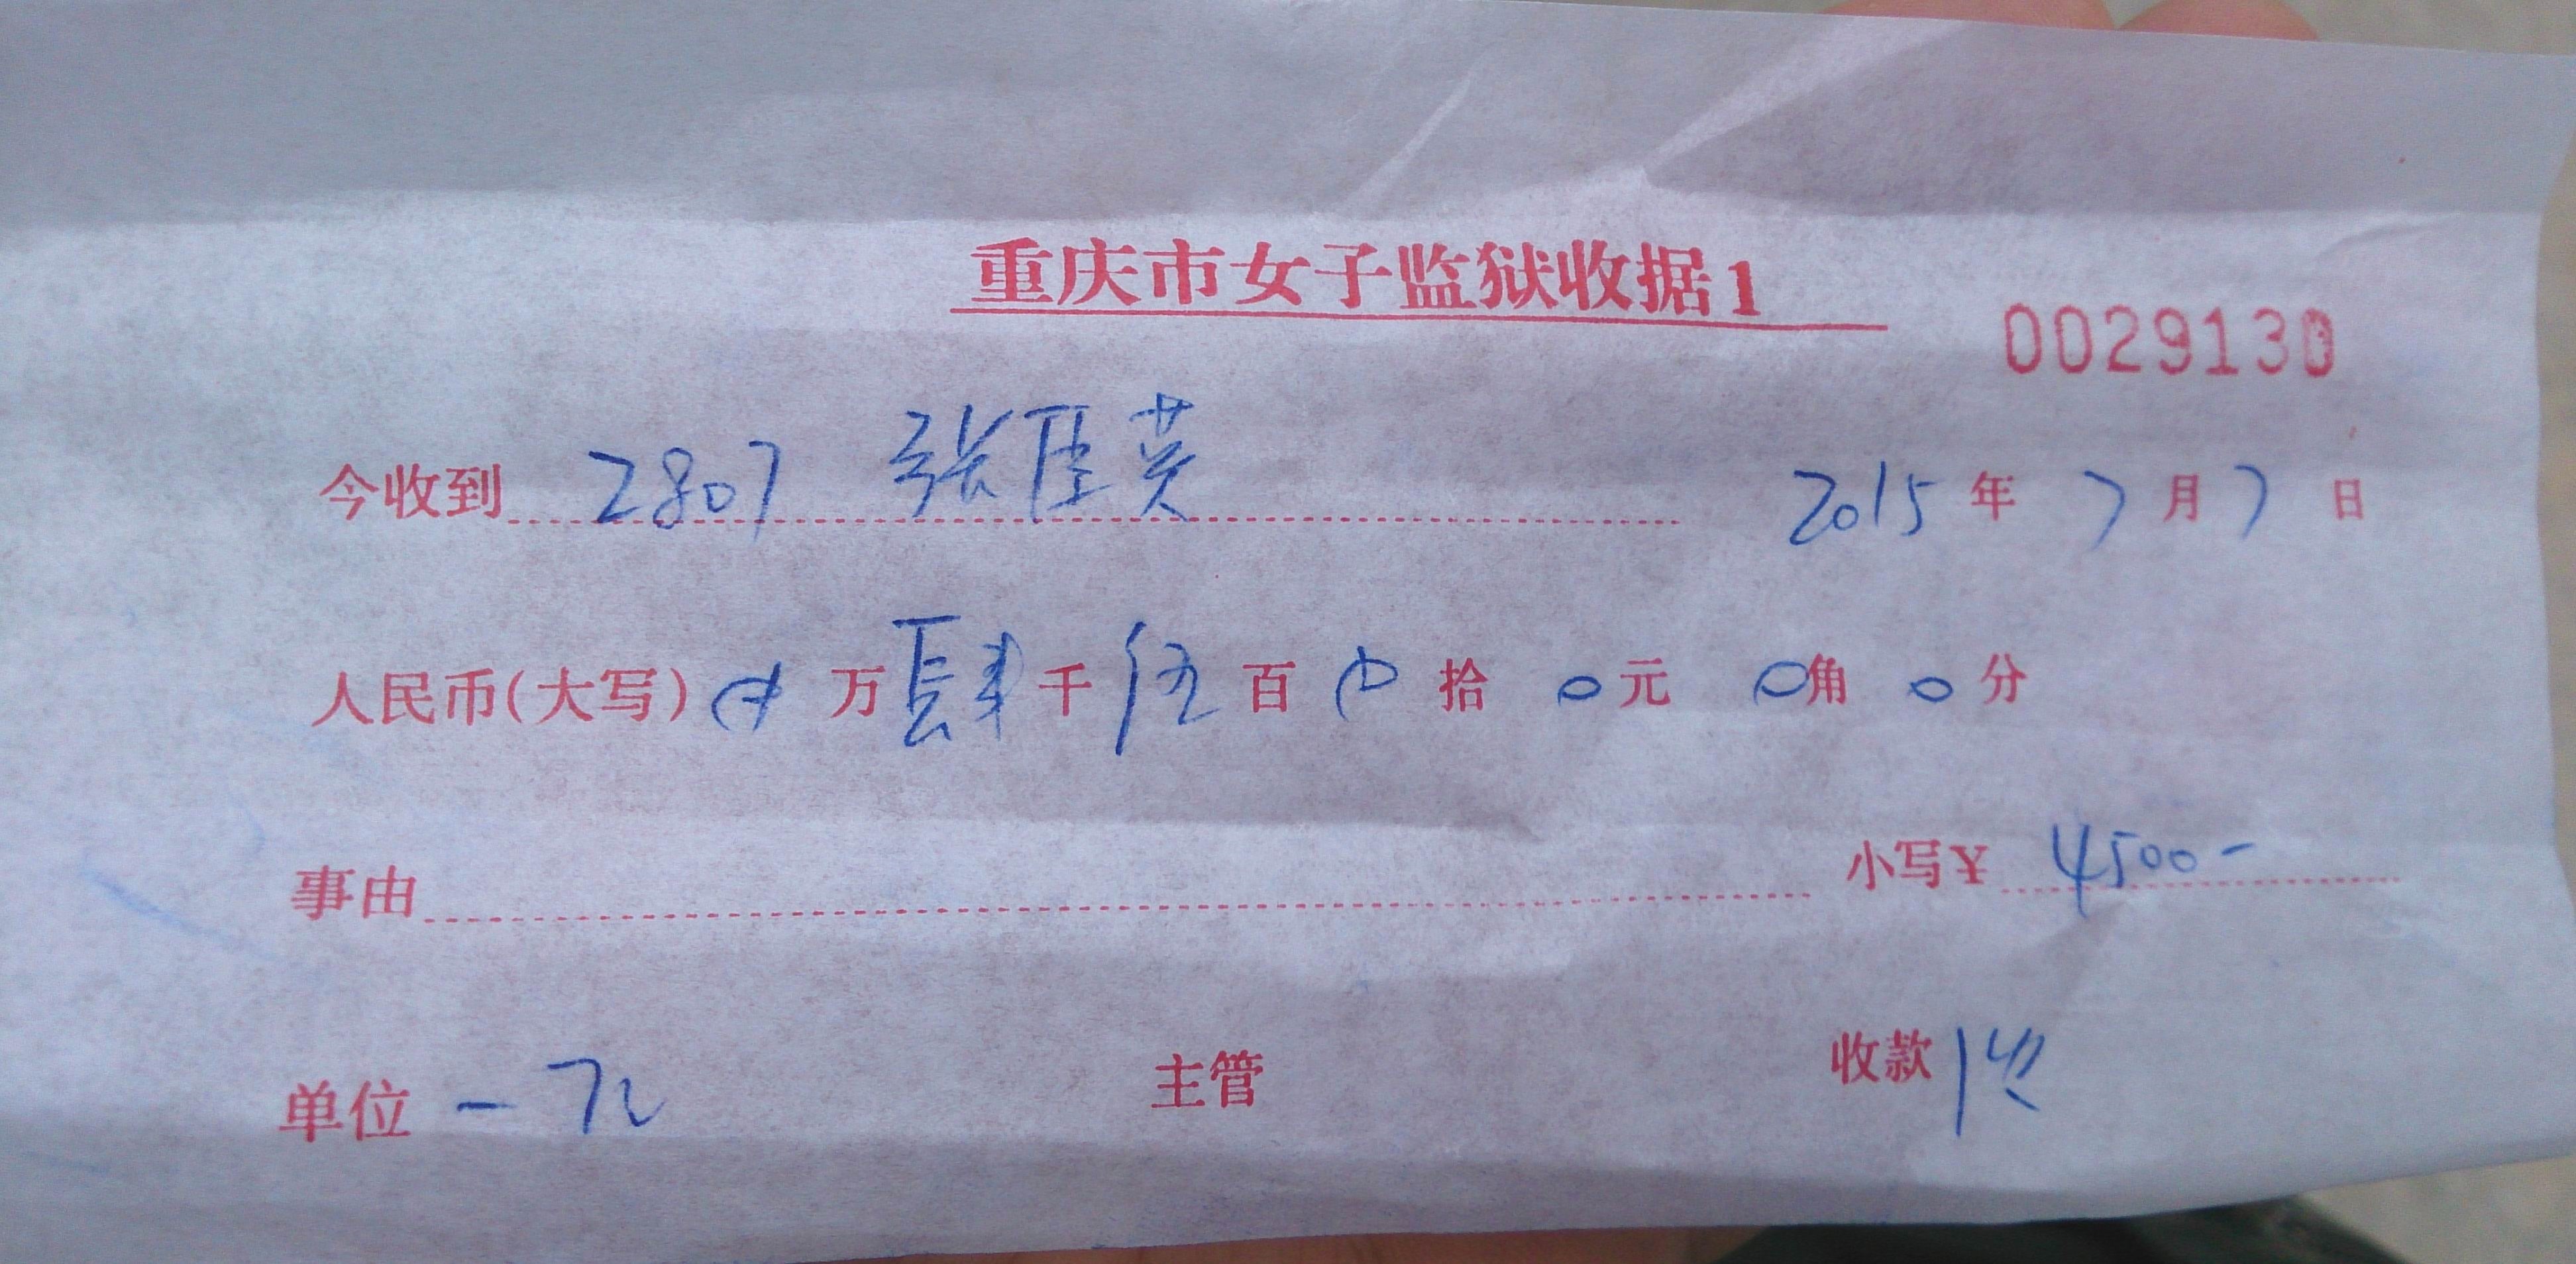 重庆市女子监狱收据1
0029130
今收到 2807 张佳英 2015年7月7日
人民币(大写) 万肆千伍百0拾0元0角0分
事由 小写¥ 4500-
单位 一 主管 收款